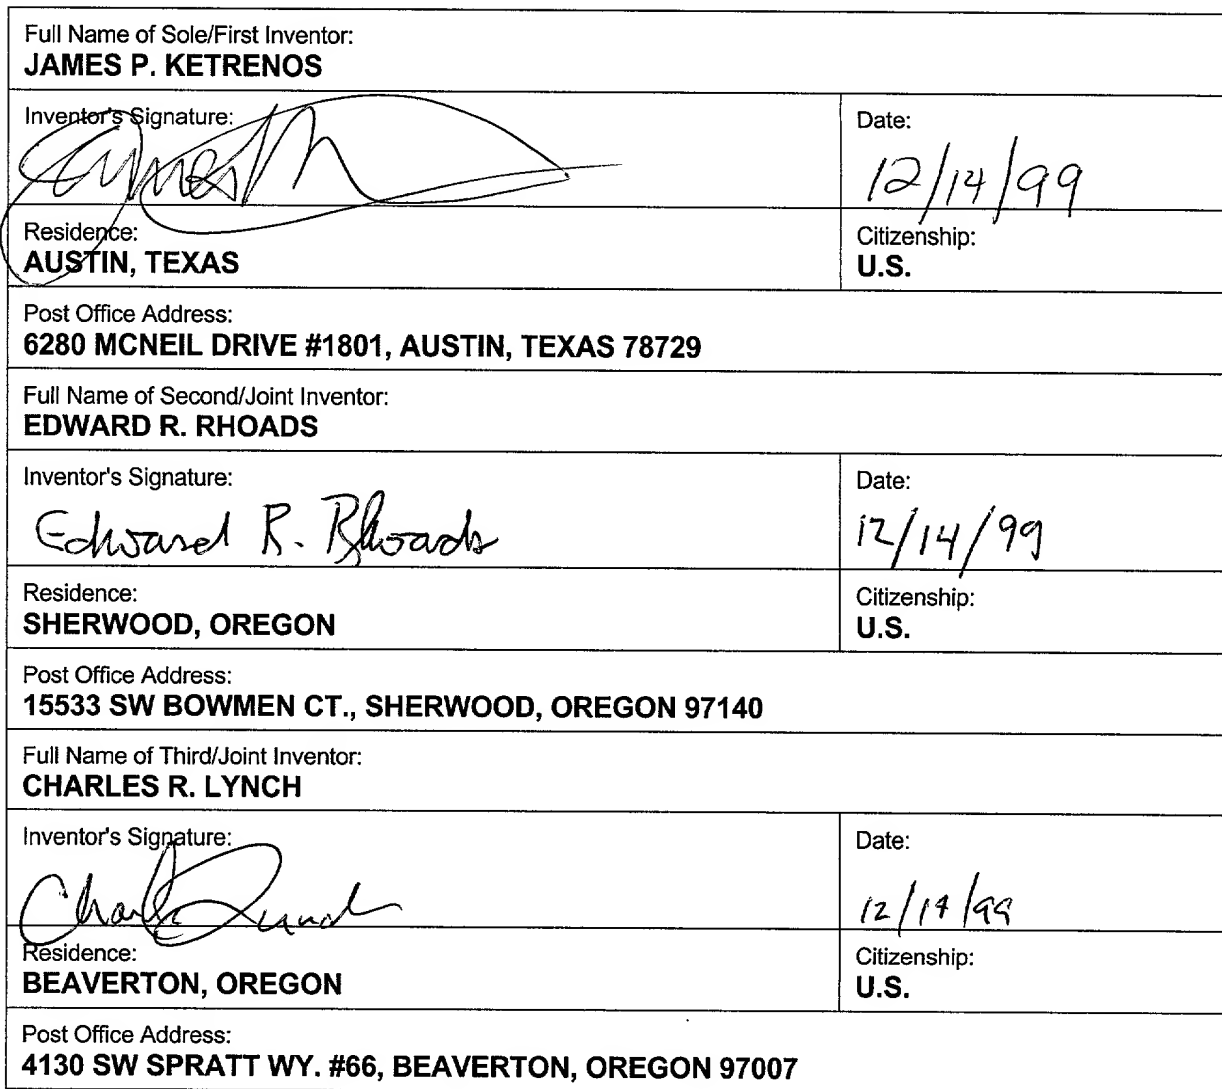 Full Name of Sole/First Inventor:
JAMES P. KETRENOS
Inventor's Signature:
Date:
12/14/99
Residence:
AUSTIN, TEXAS
Citizenship:
U.S.
Post Office Address:
6280 MCNEIL DRIVE #1801, AUSTIN, TEXAS 78729
Full Name of Second/Joint Inventor:
EDWARD R. RHOADS
Inventor's Signature:
Edward R. Rhoads
Date:
12/14/99
Residence:
SHERWOOD, OREGON
Citizenship:
U.S.
Post Office Address:
15533 SW BOWMEN CT., SHERWOOD, OREGON 97140
Full Name of Third/Joint Inventor:
CHARLES R. LYNCH
Inventor's Signature:
Date:
12/14/99
Residence:
BEAVERTON, OREGON
Citizenship:
U.S.
Post Office Address:
4130 SW SPRATT WY. #66, BEAVERTON, OREGON 97007